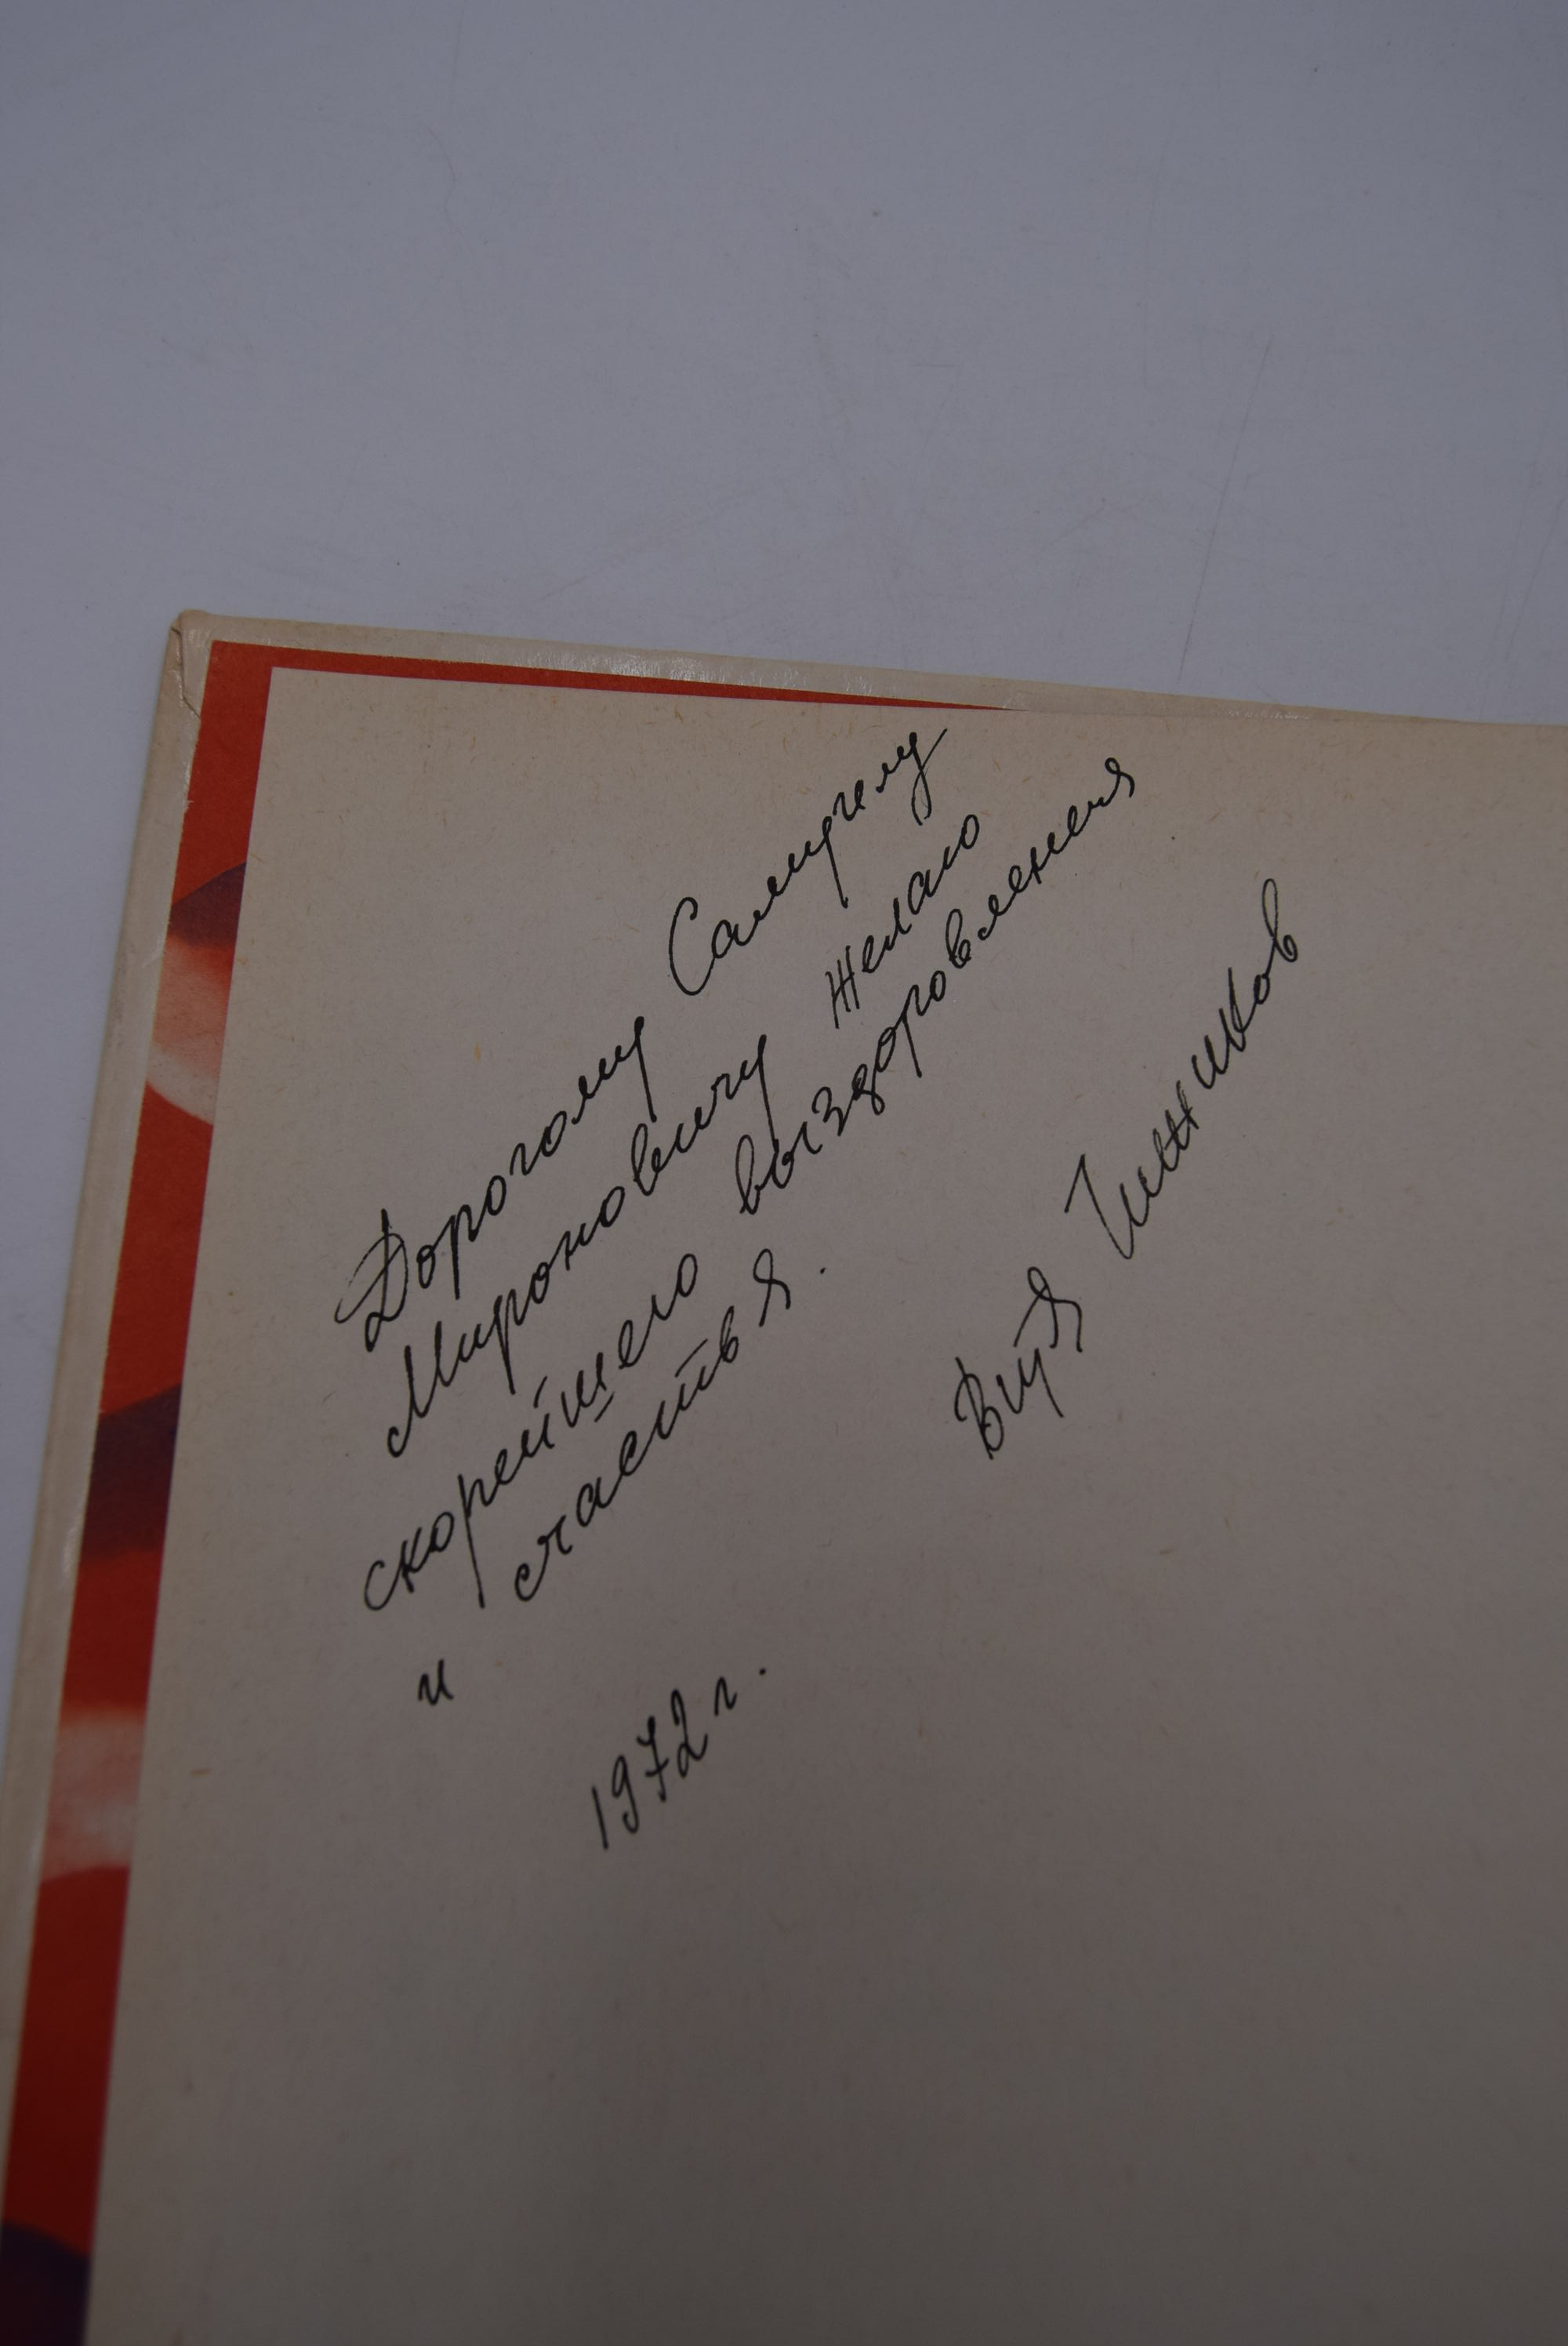 Дорогому Самуилу
Мироновичу желаю
скорейшего выздоровления
и счастья.
Витя Чижиков
1972 г.